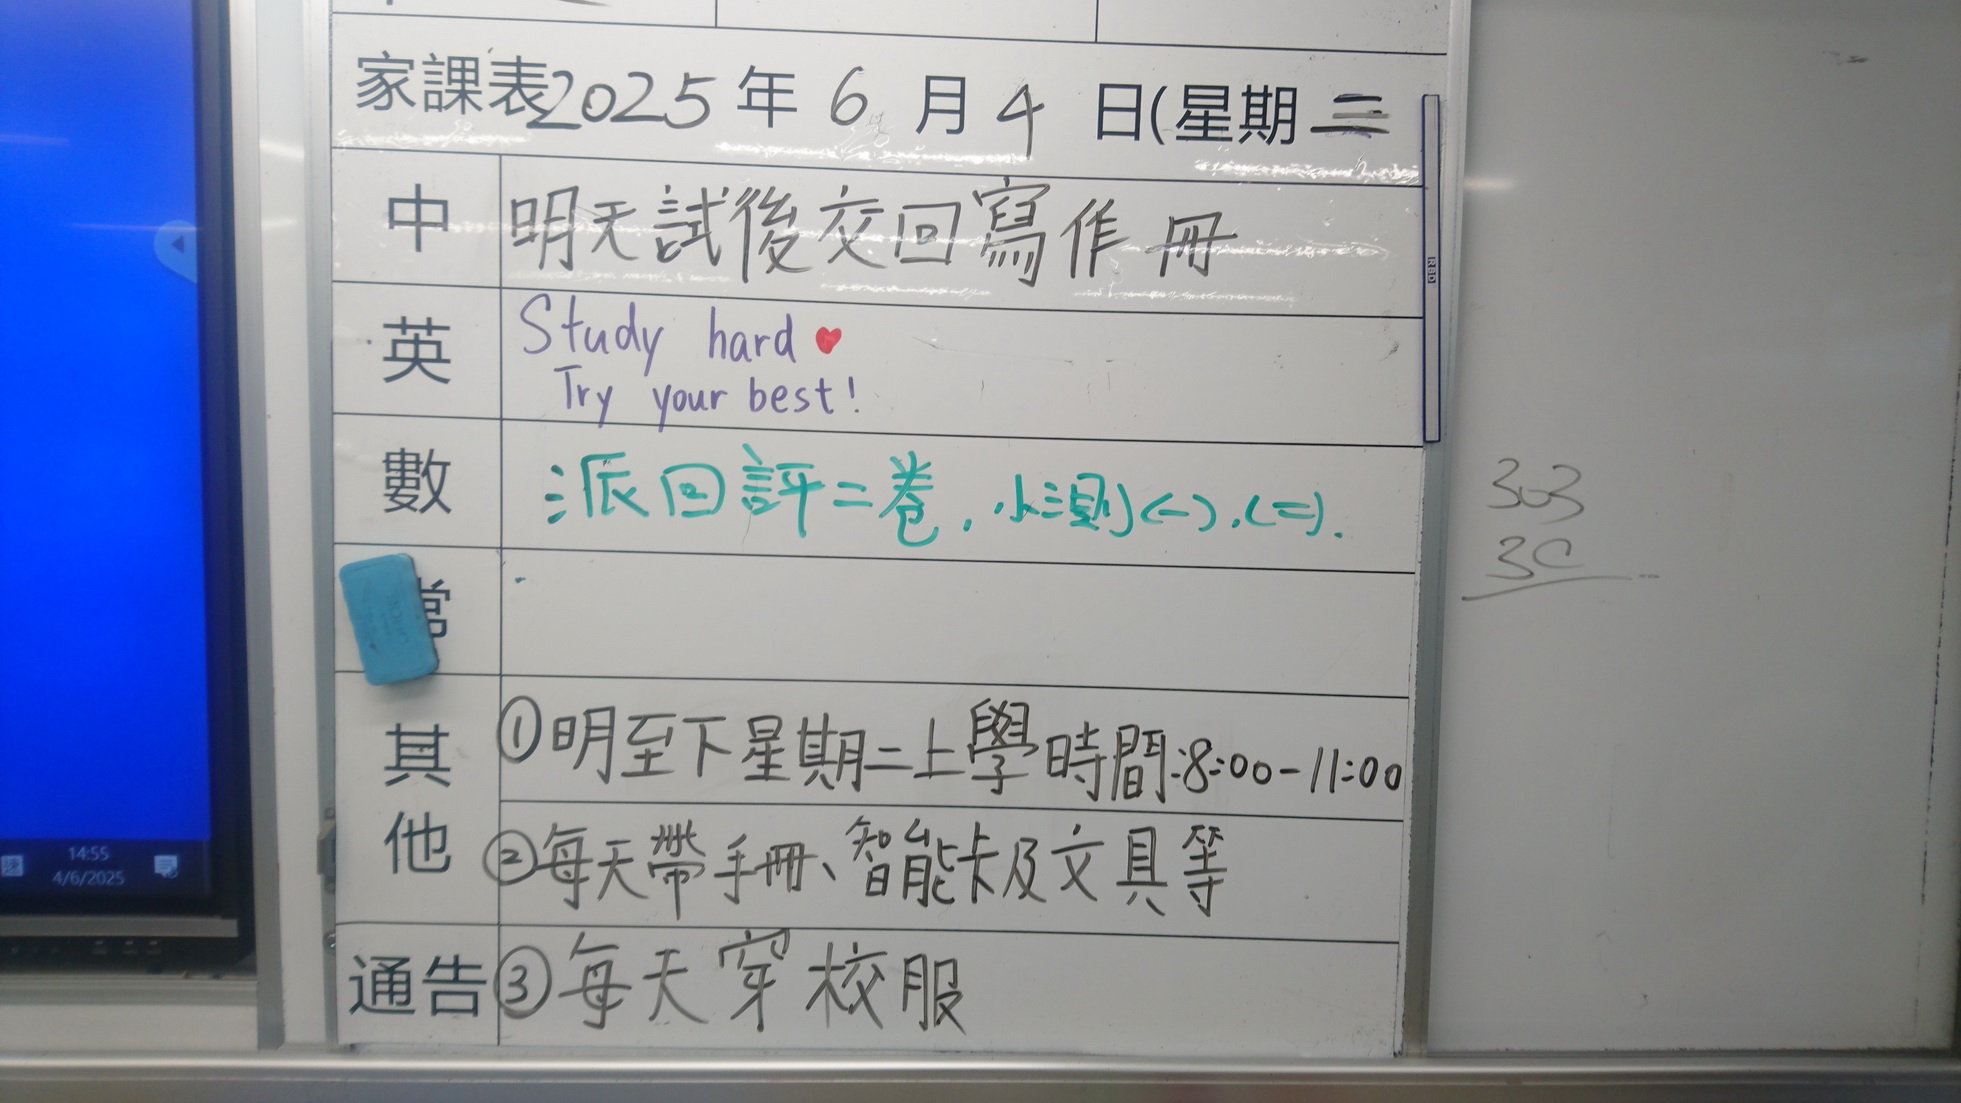 家課表2025年6月4日(星期三
中 明天試後交回寫作冊
英 Study hard
Try your best!
數 派回評二卷,小測(一),(二).
常
其他 ①明至下星期二上學時間:8:00-11:00
②每天帶手冊、智能卡及文具等
通告 ③每天穿校服
303
3C
14:55
4/6/2025